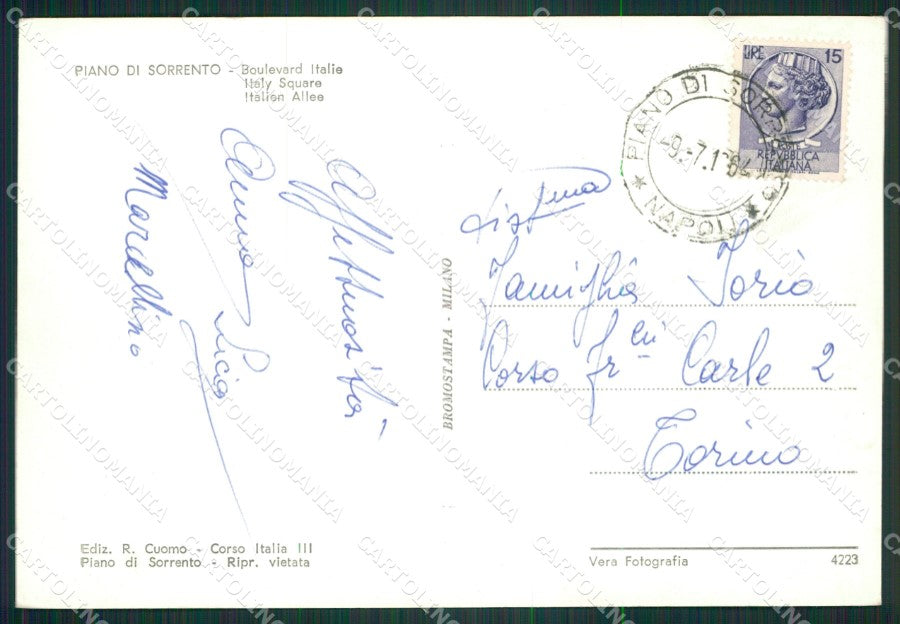 PIANO DI SORRENTO - Boulevard Italie
Italy Square
Italien Allee
Affettuosità
Anna Licia
Marcellino
BROMOSTAMPA - MILANO
LIRE 15
REPUBBLICA
ITALIANA
PIANO DI SORR
-9.-7.1964
* NAPOLI *
Famiglia Iorio
Corso Fr Carle 2
Torino
Ediz. R. Cuomo - Corso Italia III
Piano di Sorrento - Ripr. vietata
Vera Fotografia
4223
CARTOLINOMANIA